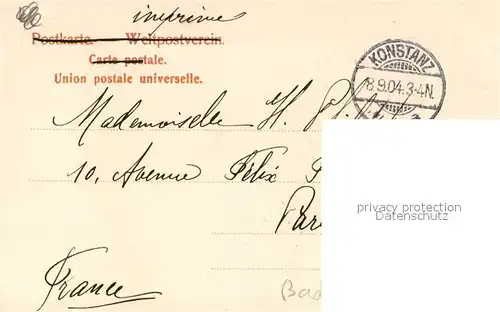 imprime
Postkarte. Weltpostverein.
Carte postale.
Union postale universelle.
KONSTANZ
8.9.04.3-4N.
Mademoiselle H.
10, Avenue Félix
privacy protection
Datenschutz
France
Bad